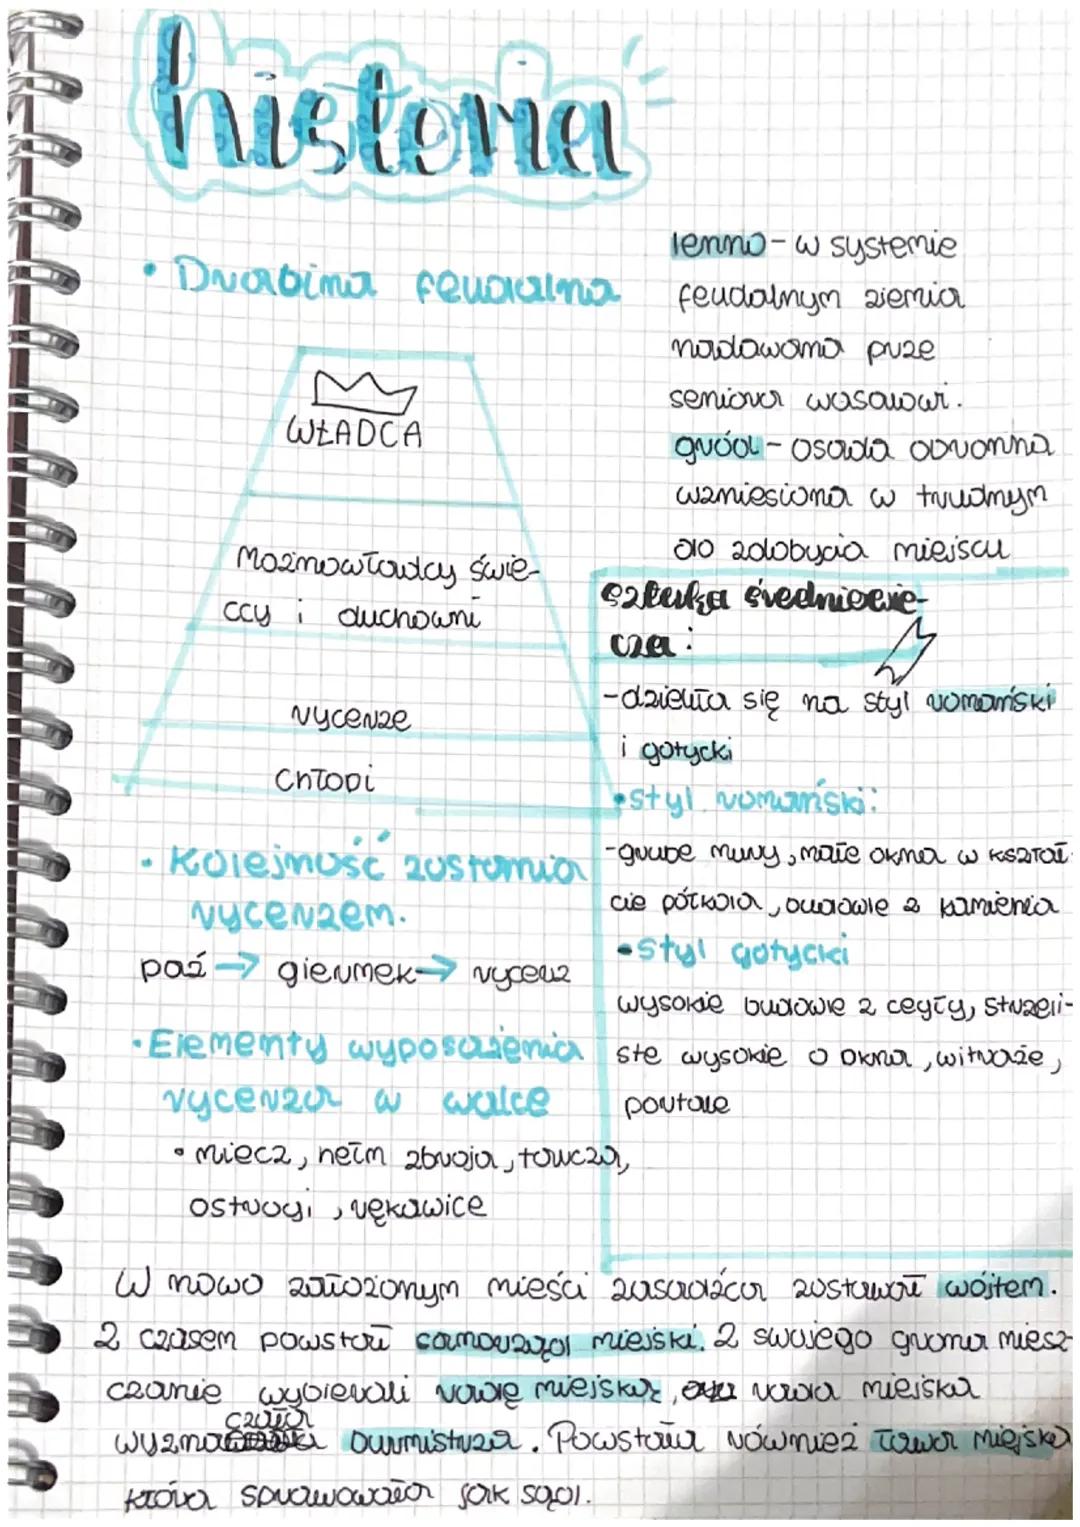 historia
• Drabina feudalna
WŁADCA
Możnowładcy świe-
ccy i duchowni
rycerze
Chłopi
• Kolejność zostania
rycerzem.
paź → giermek → rycerz
• Elementy wyposażenia
rycerza w walce
• miecz, hełm zbroja, tarcza,
ostrogi, rękawice
lenno - w systemie
feudalnym ziemia
nadawana prze
seniora wasalowi.
gród - osada obronna
wzniesiona w trudnym
do zdobycia miejscu
sztuka średniowie-
cza:
- dzieliła się na styl romański
i gotycki
• styl romański:
- grube mury, małe okna w kształ
cie półkola, budowle z kamienia
• styl gotycki
wysokie budowle z cegły, strzeli-
ste wysokie o okna, witraże,
portale
W nowo założonym mieści zasadźca zostawał wójtem.
Z czasem powstał samorząd miejski. Z swojego grona miesz
czanie wybierali radę miejską, rada miejska
wyznaczała burmistrza. Powstała również ława miejska
która sprawowała jak sąd.